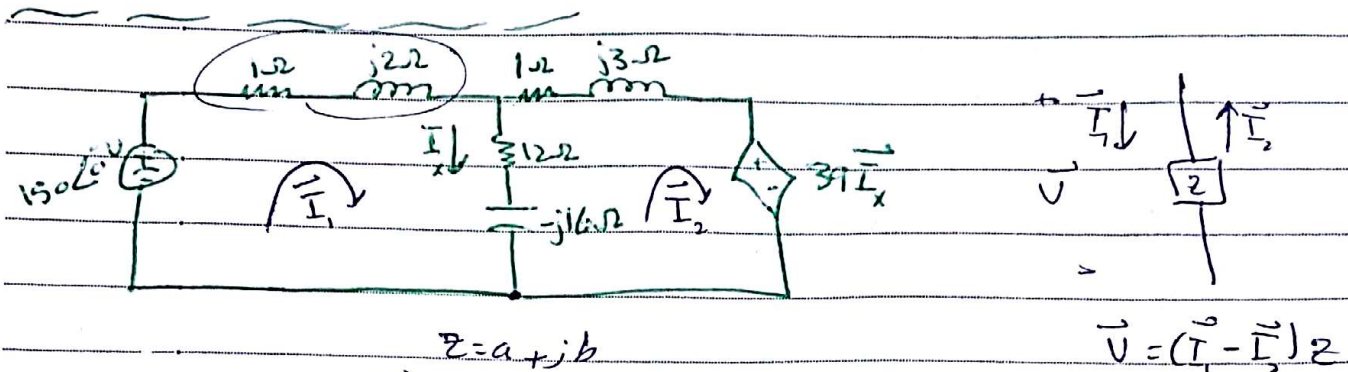 1Ω j2Ω 1Ω j3Ω
150∠0° V
I⃗₁
I⃗ₓ↓
12Ω
-j16Ω
I⃗₂
+
-
39I⃗ₓ
+
V⃗
-
I⃗₁↓
↑I⃗₂
Z
Z=a+jb
V⃗=(I⃗₁-I⃗₂)Z